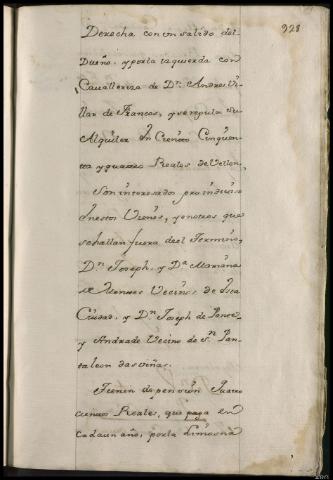 328
Derecha con un salido del
Dueño, y por la izquierda con
Cavalleriza de Dn. Andres Vi-
llar de Francos, y se regula su
Alquiler En Ciento Cinquen-
ta y quatro Reales de Vellon,
Son interesados proindivisso
en estos Vienes, y en otros que
se hallan fuera de el Termino,
Dn. Joseph, y Da. Mariana
de Vecinos de esta
Ciudad, y Dn. Joseph de
y Andrade Vecino de Sn. Pan-
taleon das viñas.
Tienen de pension Quatro
cientos Reales, que paga en
cada un año, por la Limosna